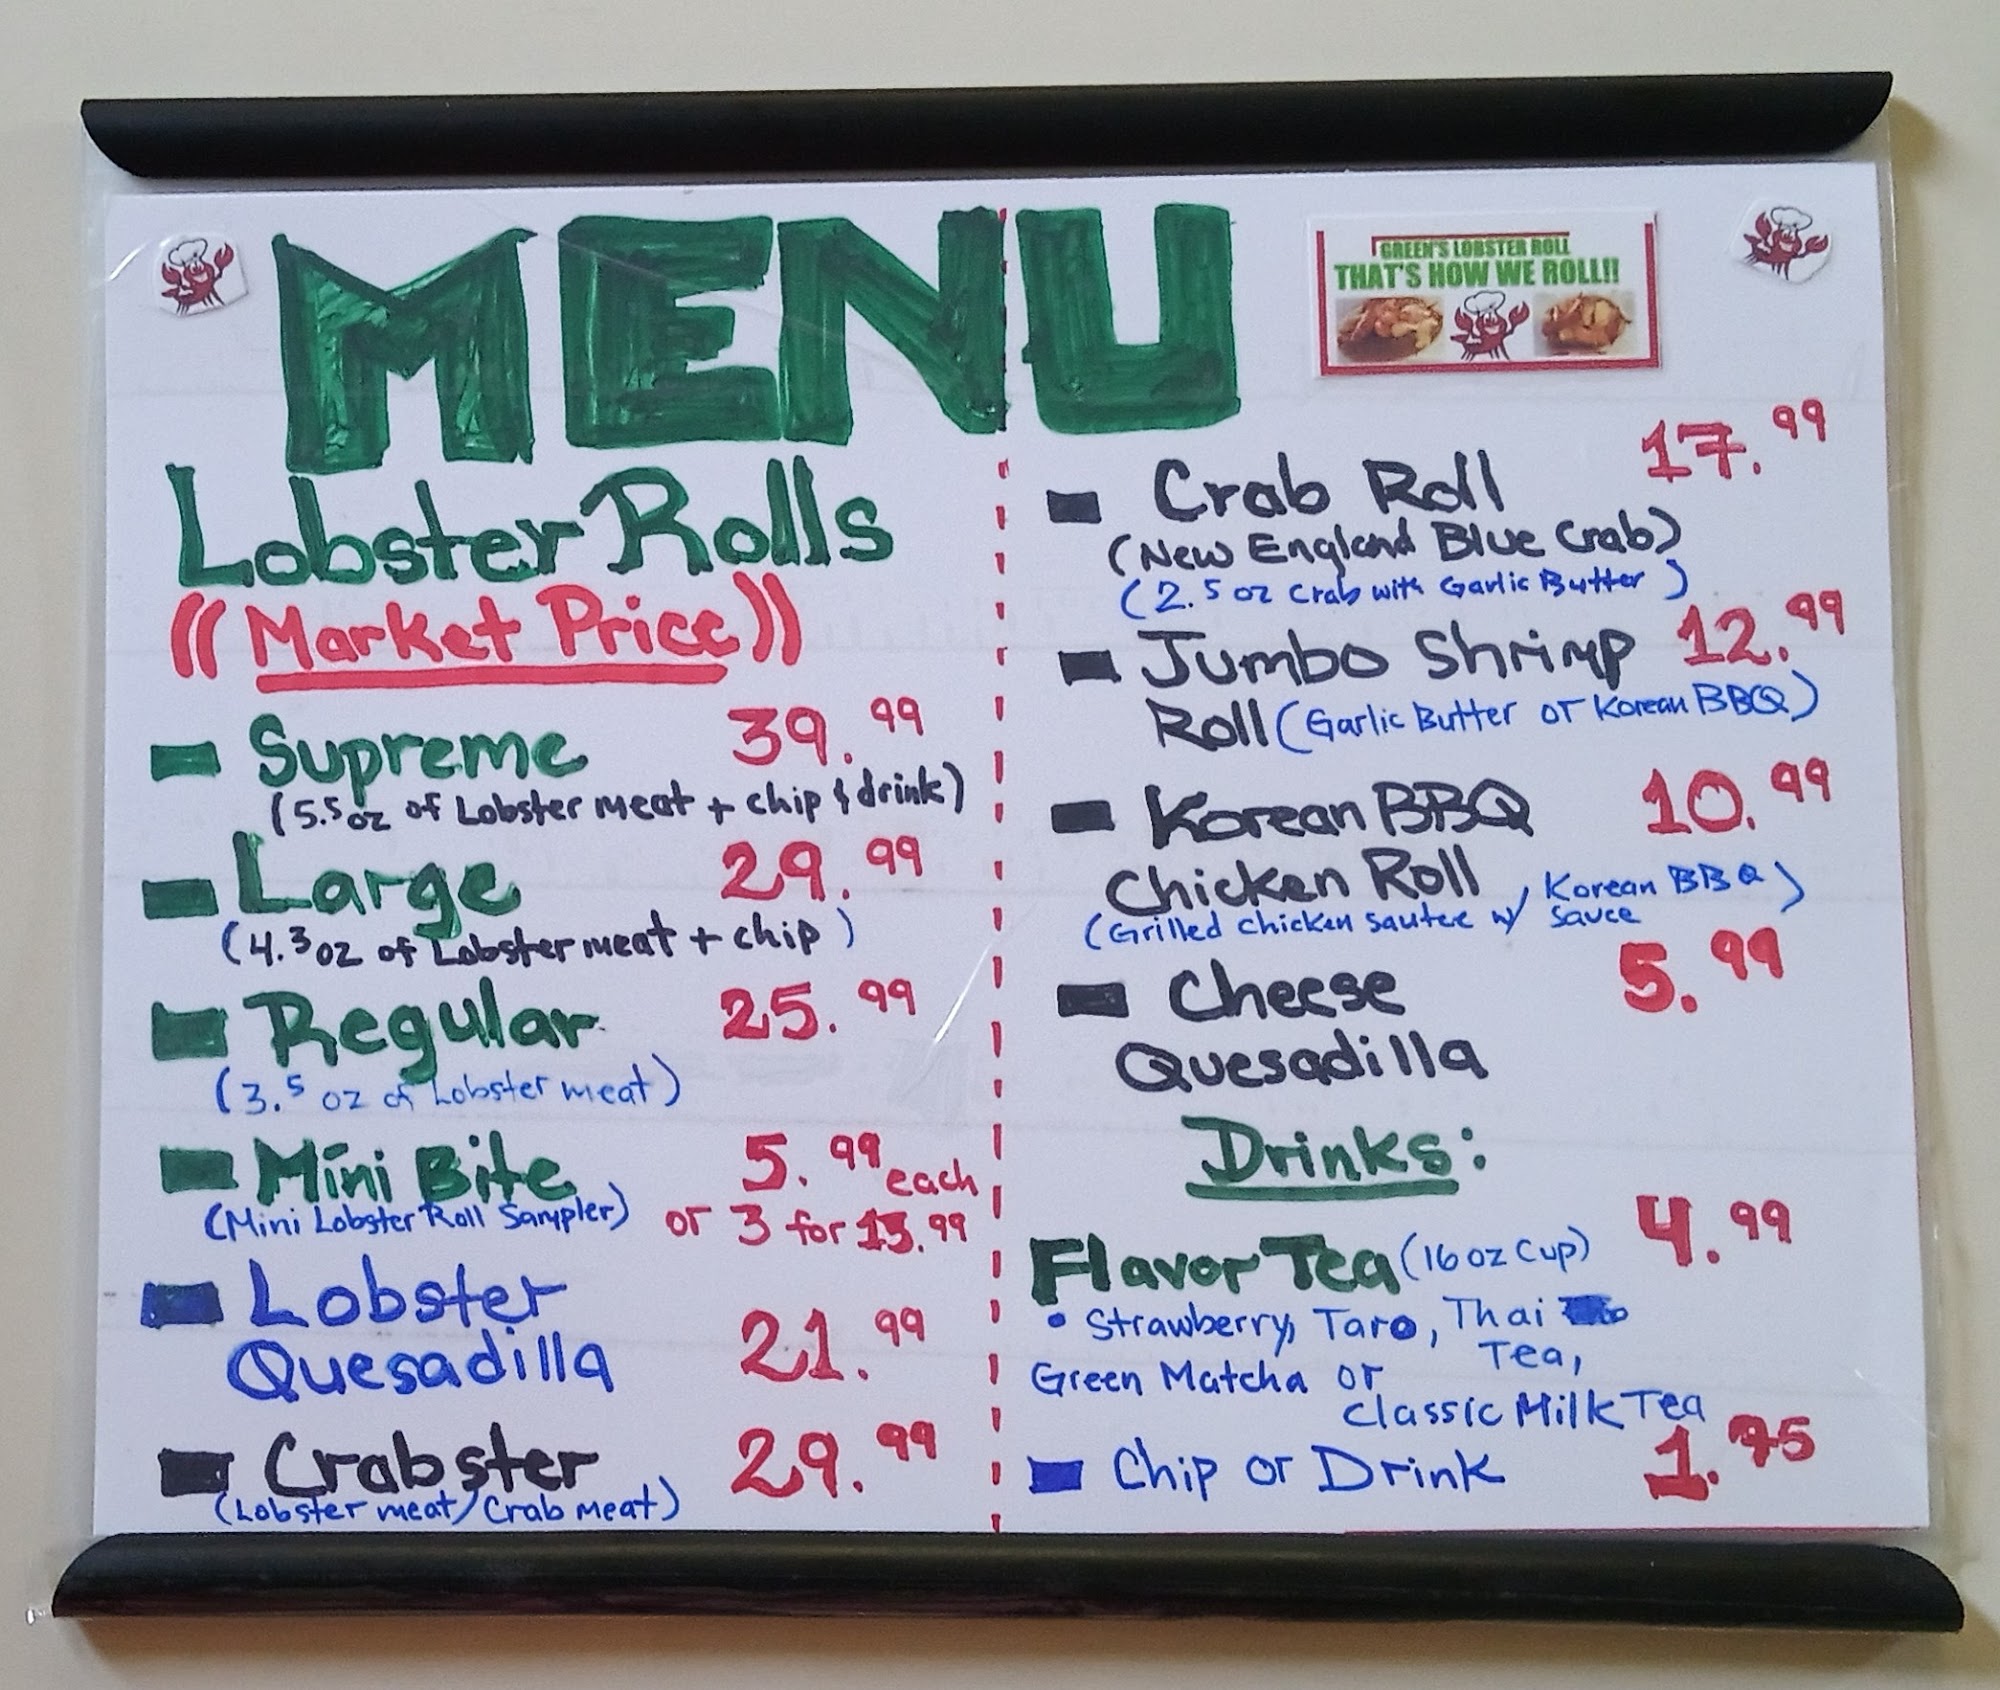 MENU
GREEN'S LOBSTER ROLL
THAT'S HOW WE ROLL!!
Lobster Rolls
((Market Price))
Supreme 39.99
(5.5oz of Lobster meat + chip & drink)
Large 29.99
(4.3oz of Lobster meat + chip)
Regular 25.99
(3.5 oz of Lobster meat)
Mini Bite 5.99 each
(Mini Lobster Roll Sampler) or 3 for 15.99
Lobster
Quesadilla 21.99
Crabster 29.99
(Lobster meat/Crab meat)
Crab Roll 17.99
(New England Blue Crab)
(2.5 oz Crab with Garlic Butter)
Jumbo Shrimp 12.99
Roll (Garlic Butter or Korean BBQ)
Korean BBQ 10.99
Chicken Roll
(Grilled chicken sautee w/ Korean BBQ)
Sauce
Cheese 5.99
Quesadilla
Drinks:
Flavor Tea (16 oz Cup) 4.99
• Strawberry, Taro, Thai
Tea,
Green Matcha or
Classic Milk Tea
Chip or Drink 1.75